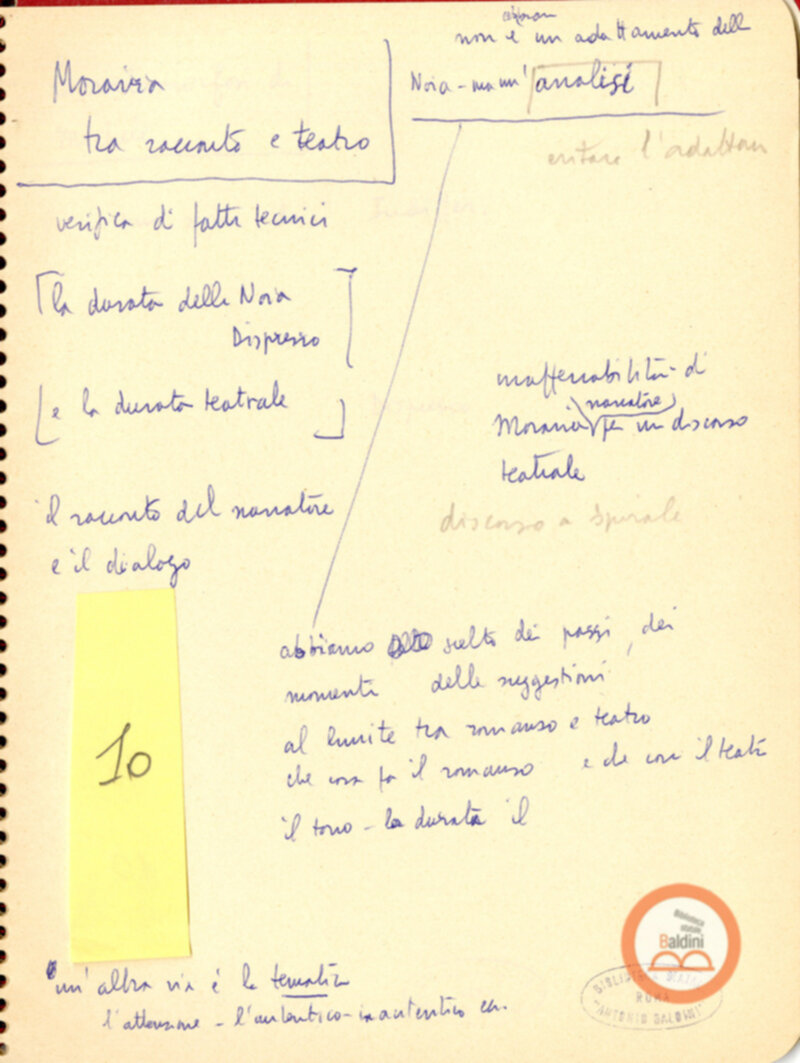 Moravia
tra racconto e teatro
non è un adattamento della
Noia - ma un' analisi
evitare l'adattam
verifica di fatti tecnici
la durata della Noia
Disprezzo
e la durata teatrale
inafferrabilità di
Moravia narratore per un discorso
teatrale
discorso a spirale
il racconto del narratore
e il dialogo
abbiamo scelto dei passi, dei
momenti delle suggestioni
al limite tra romanzo e teatro
che cosa fa il romanzo e che cosa il teatro
il tono - la durata il
10
un'altra via è la tematica
l'attenzione - l'autentico - inautentico ecc.
Biblioteca
statale
Baldini
BIBLIOTECA STATALE
ROMA
"ANTONIO BALDINI"